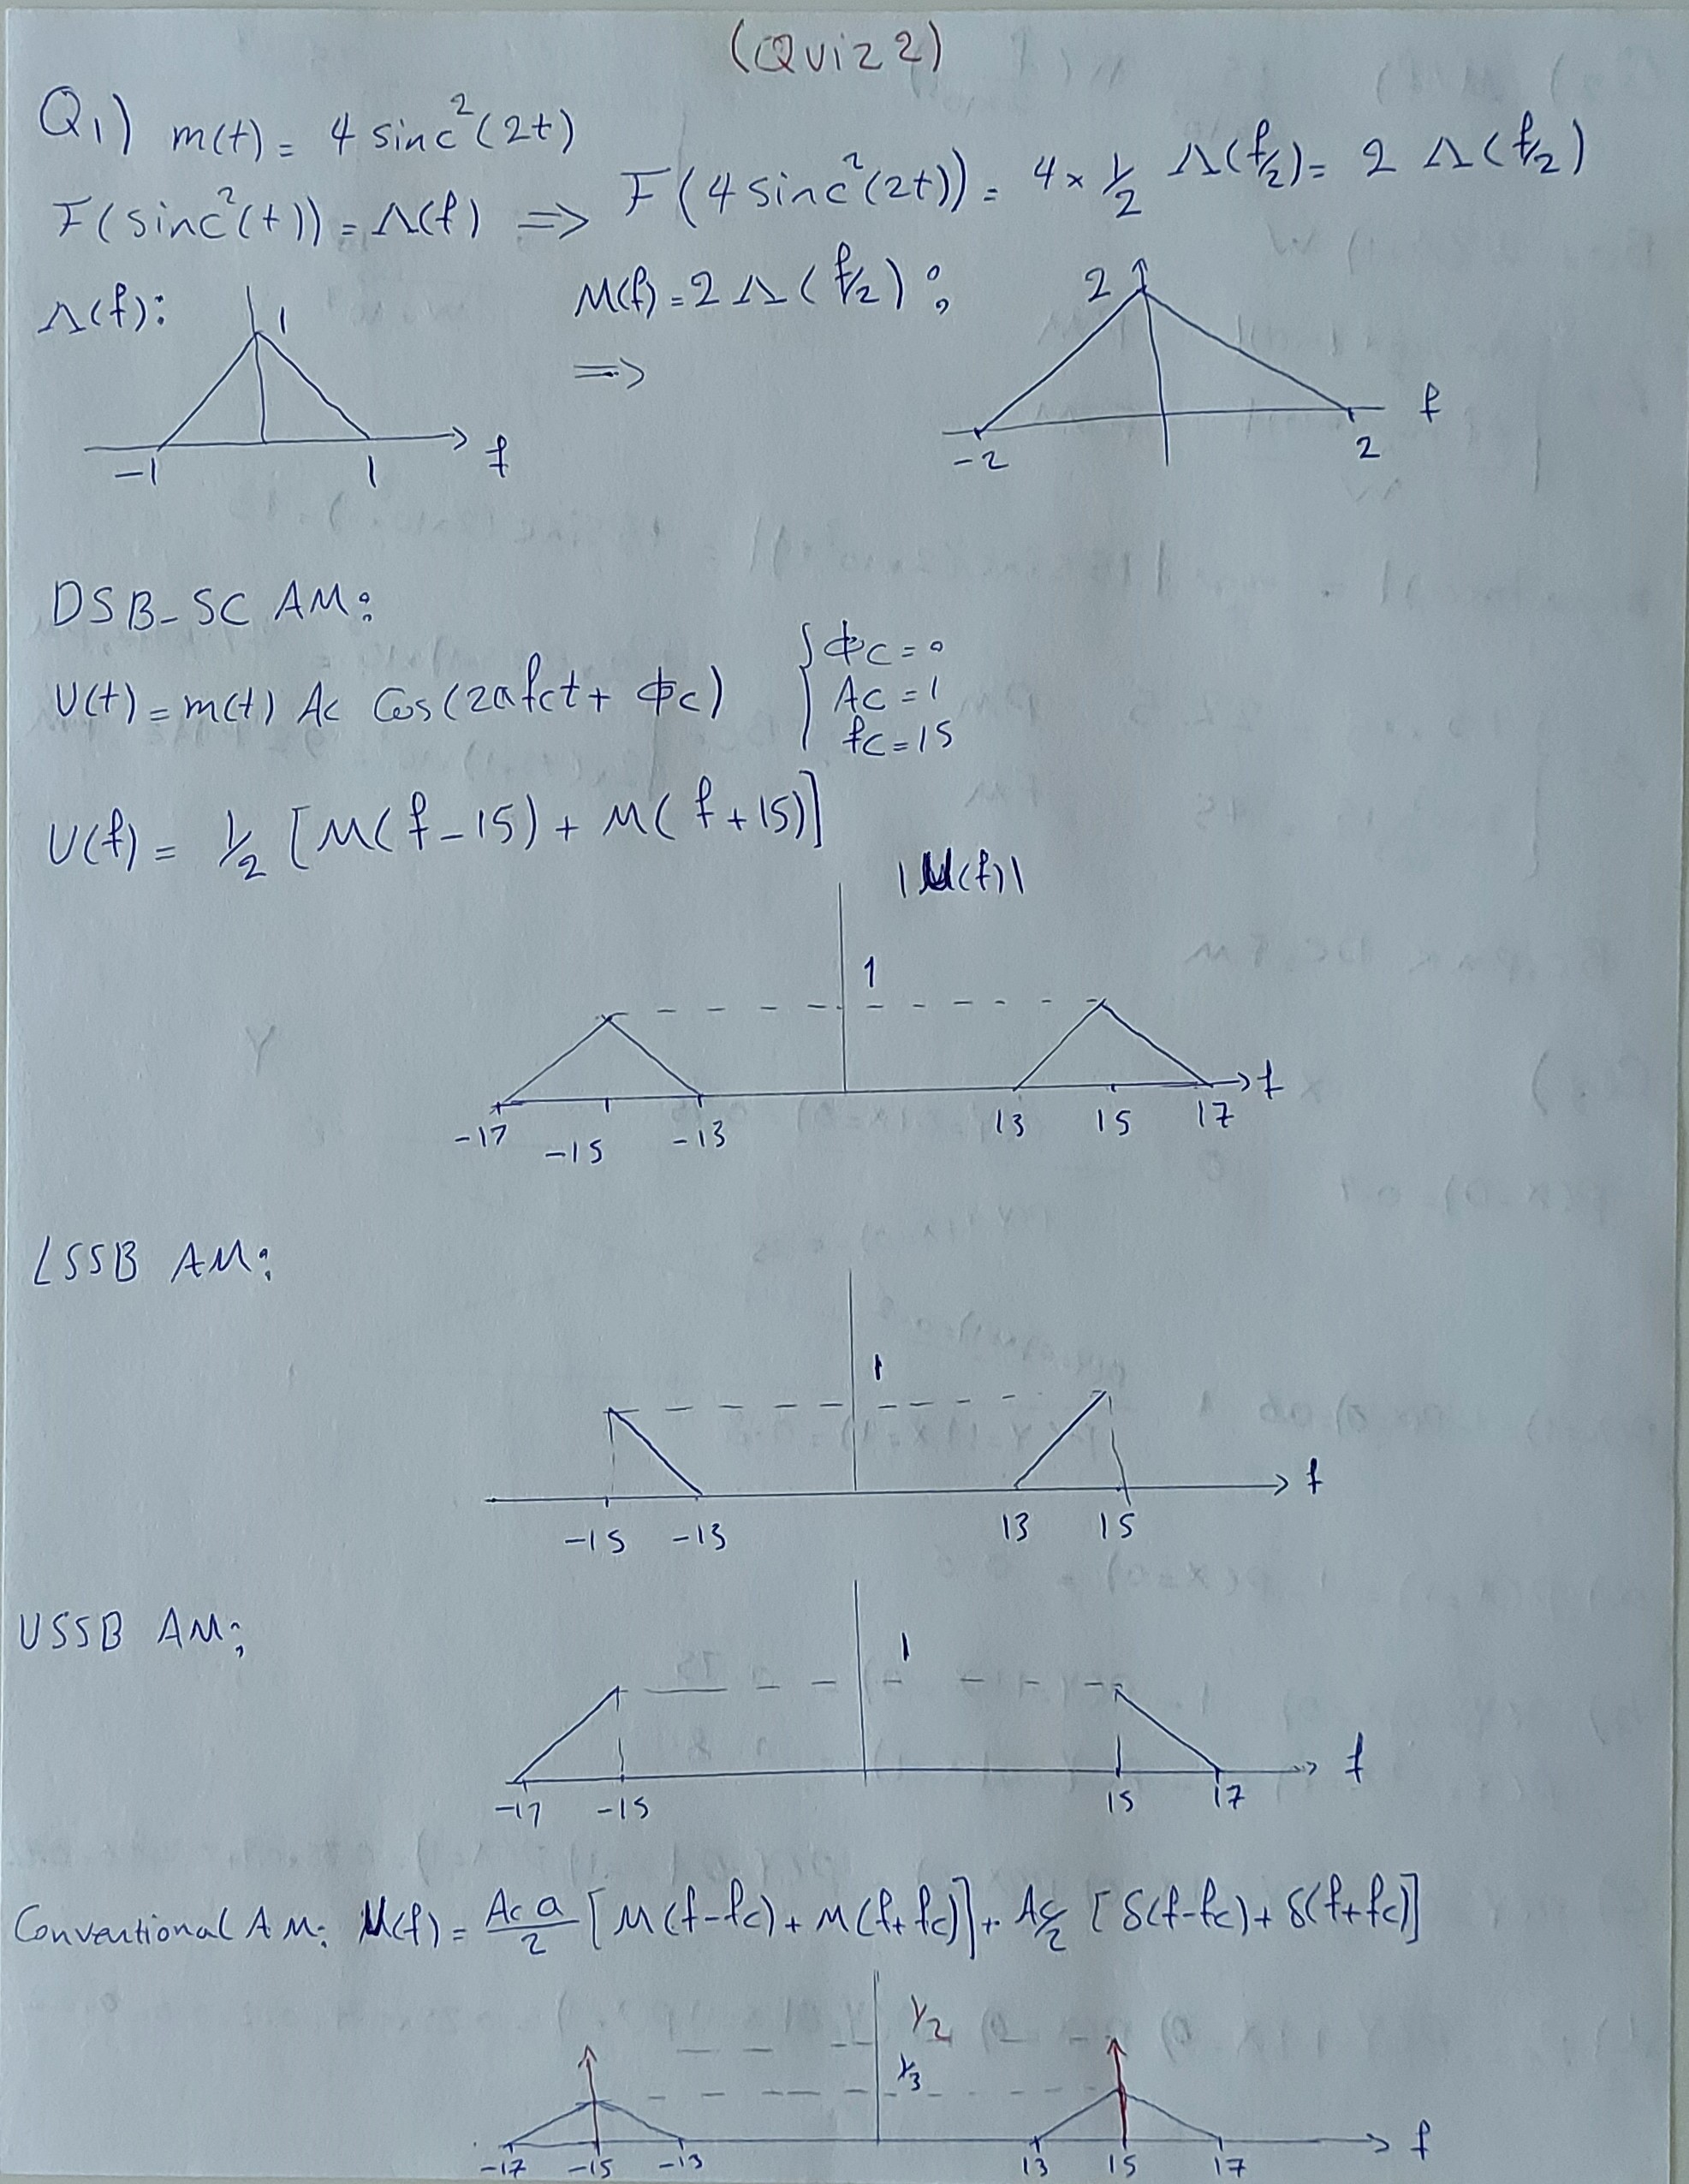 (Quiz 2)
Q1) m(t) = 4 sinc²(2t)
F(sinc²(t)) = Λ(f) => F(4 sinc²(2t)) = 4 × 1/2 Λ(f/2) = 2 Λ(f/2)
Λ(f): 1 M(f) = 2 Λ(f/2): 2
=>
-1 1 f -2 2 f
DSB-SC AM:
U(t) = m(t) Ac Cos(2πfct + Φc) { Φc = 0
Ac = 1
fc = 15
U(f) = 1/2 [M(f-15) + M(f+15)]
|U(f)|
1
-17 -15 -13 13 15 17 f
LSSB AM:
1
-15 -13 13 15 f
USSB AM:
1
-17 -15 15 17 f
Conventional AM: U(f) = Ac a/2 [M(f-fc) + M(f+fc)] + Ac/2 [δ(f-fc) + δ(f+fc)]
1/2
1/3
-17 -15 -13 13 15 17 f